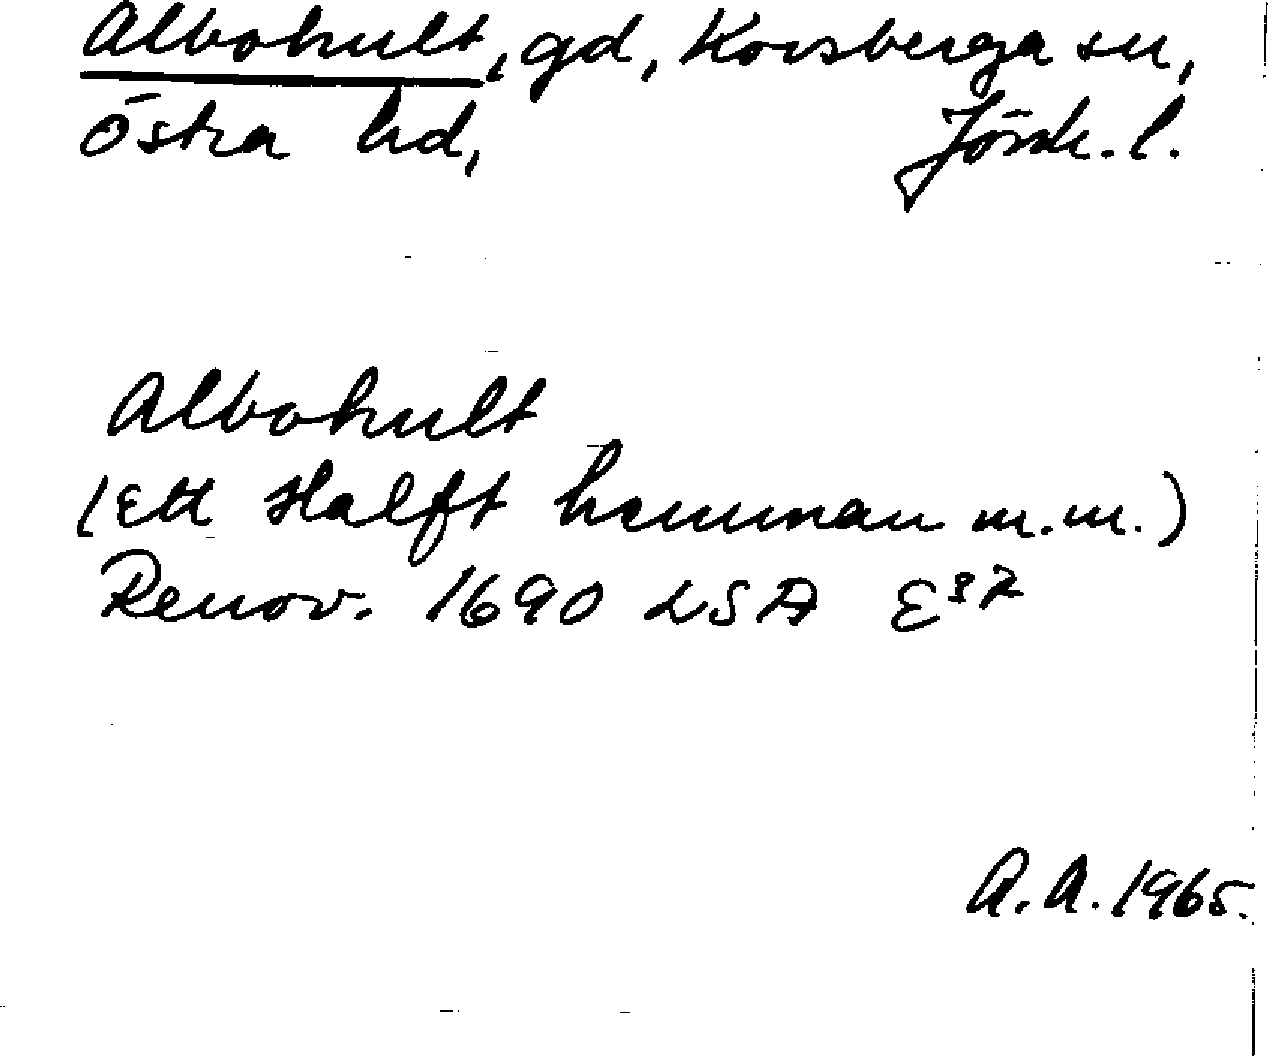 Albohult, gd, Korsberga sn,
Östra hd, Jönk. l.
Albohult
(Ett Halft hemman m.m.)
Renov. 1690 LSA E
A.A. 1965.